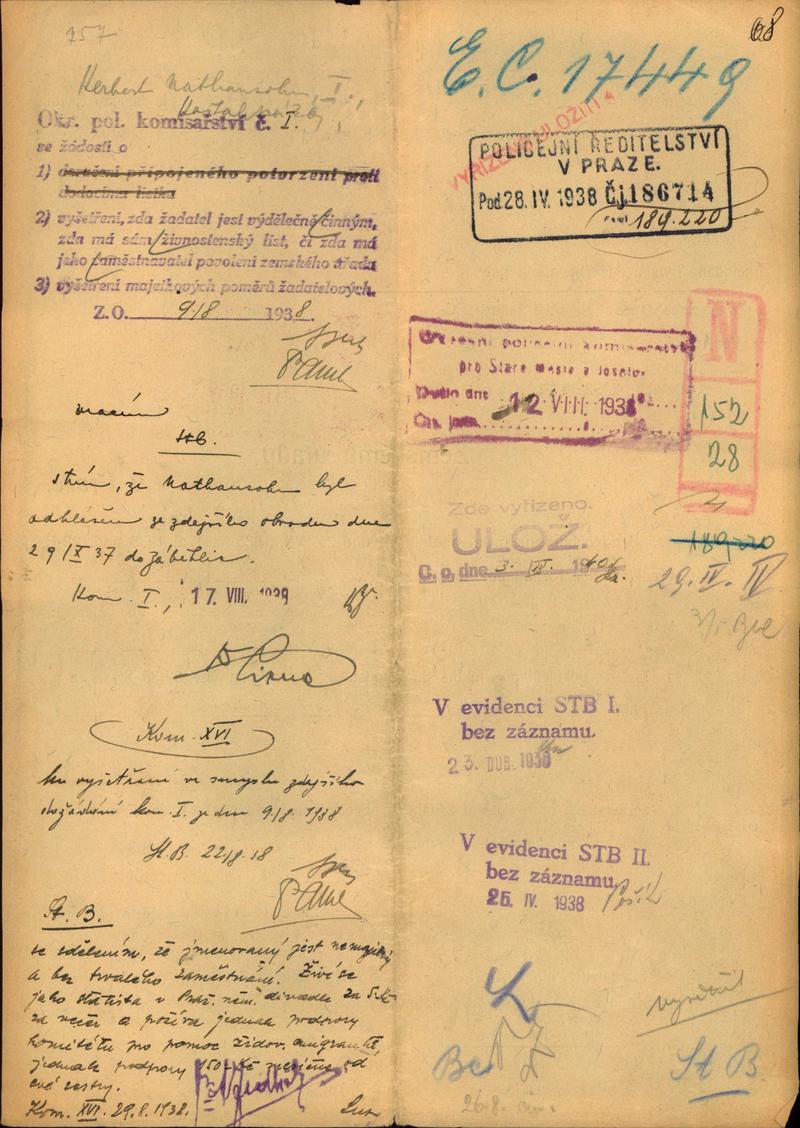 157
Herbert Nathansohn, I.,
Okr. pol. komisařství č. I.
se žádostí o
1) doručení připojeného potvrzení proti
dodacímu lístku
2) vyšetření, zda žadatel jest výdělečně činným,
zda má sám živnostenský list, či zda má
jeho zaměstnavatel povolení zemského úřadu
3) vyšetření majetkových poměrů žadatelových.
Z.O. 9/8 1938.
vracím
StB.
s tím, že Nathansohn byl
odhlášen ze zdejšího obvodu dne
29/X 37 do Záběhlic.
Kom. I., 17. VIII. 1938
Kom. XVI
ku vyšetření ve smyslu zdejšího
dožádání kom. I. ze dne 9./8. 1938
St. B. 22./8. 38
St. B.
se sdělením, že jmenovaný jest nemajetný
a bez trvalého zaměstnání. Živí se
jako statista v Praž. něm. divadle za 5 Kč
za večer a požívá jednak podpory
komitétu pro pomoc židov. emigrantů,
jednak podpory 150 Kč měsíčně od
své sestry.
Kom. XVI. 29.8.1938.
68
E.C. 17449
POLICEJNÍ ŘEDITELSTVÍ
V PRAZE.
Pod. 28. IV. 1938 Čj 186714
189.220
Okresní policejní komisařství
pro Staré město a Josefov
Došlo dne 12 VIII. 1938
Čís. jedn.
N
152
28
Zde vyřízeno.
ULOŽ.
C. o. dne 3.
189220
29. IV. IV
V evidenci STB I.
bez záznamu.
23. DUB. 1938
V evidenci STB II.
bez záznamu.
25. IV. 1938
St B.
26.8.